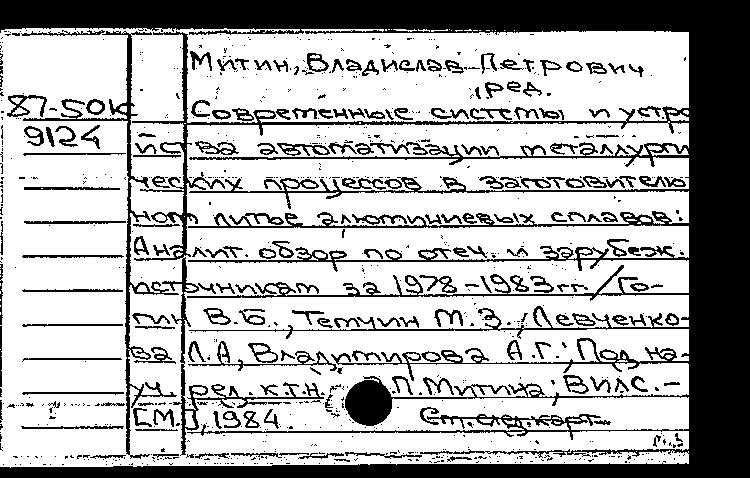 Митин, Владислав Петрович
, ред.
87-50К Современные системы и устро
9124 йства автоматизации металлурги
ческих процессов в заготовитель
ном литье алюминиевых сплавов:
Аналит. обзор по отеч. и зарубеж.
источникам за 1978-1983 гг. / Го-
гин В.Б., Темчин М.З., Левченко-
ва Л.А, Владимирова А.Г.; Под на-
уч. ред. к.т.н. П. Митина; Вилс.-
[М.], 1984. См. след. карт.